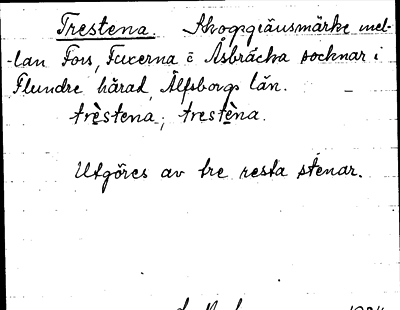 Trestena. Skogsgränsmärke mel-
-lan Fors, Fuxerna o Åsbräcka socknar i
Flundre härad, Älfsborgs län.
trèstena; trestèna.
Utgöres av tre resta stenar.